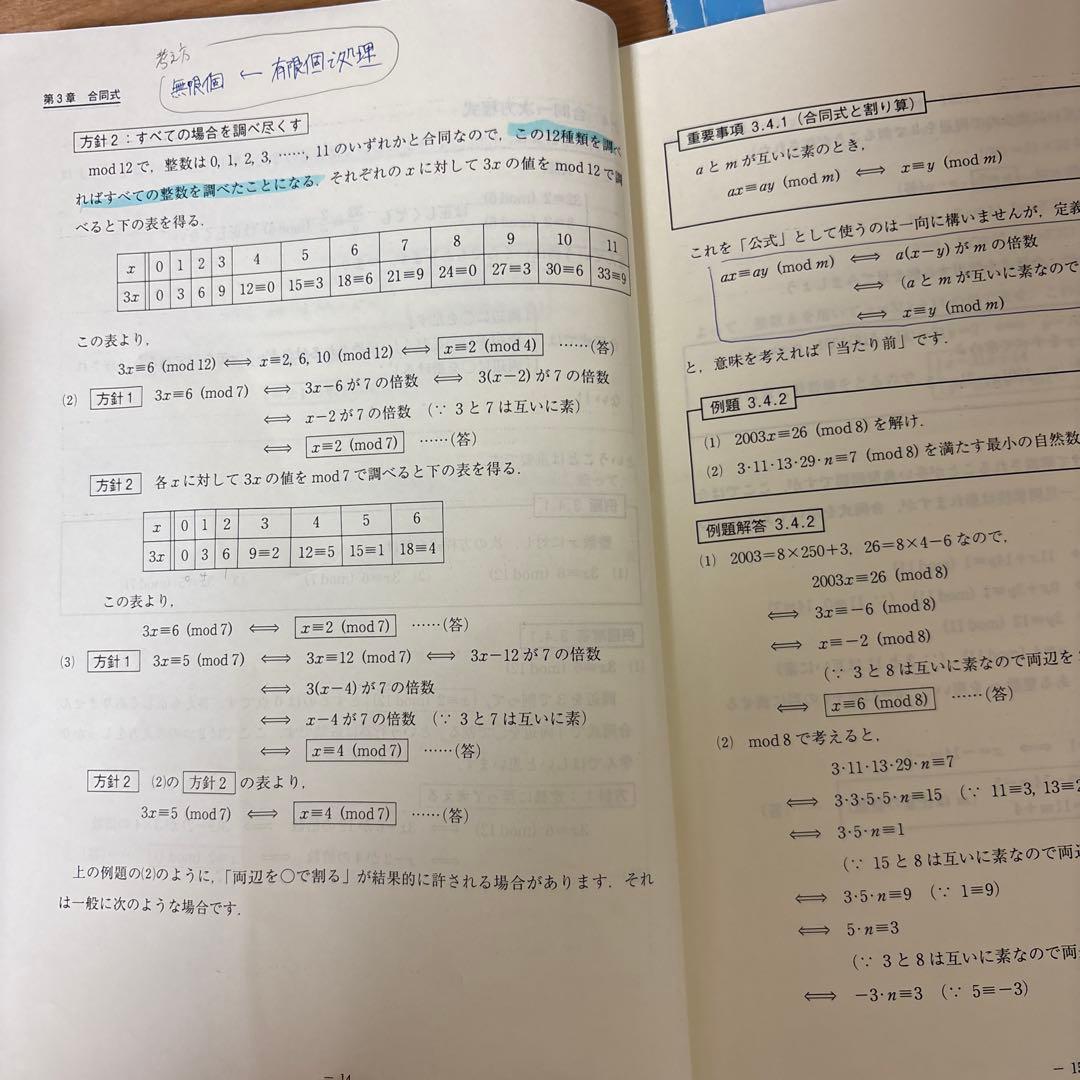 考え方
無限個 ← 有限個で処理
第3章 合同式
方針2：すべての場合を調べ尽くす
mod 12 で，整数は 0, 1, 2, 3, ……, 11 のいずれかと合同なので，この12種類を調べ
ればすべての整数を調べたことになる．それぞれの x に対して 3x の値を mod 12 で調
べると下の表を得る．
x 0 1 2 3 4 5 6 7 8 9 10 11
3x 0 3 6 9 12≡0 15≡3 18≡6 21≡9 24≡0 27≡3 30≡6 33≡9
この表より，
3x≡6 (mod 12) ⟺ x≡2, 6, 10 (mod 12) ⟺ x≡2 (mod 4) ……(答)
(2) 方針1 3x≡6 (mod 7) ⟺ 3x−6 が 7 の倍数 ⟺ 3(x−2) が 7 の倍数
⟺ x−2 が 7 の倍数 (∵ 3 と 7 は互いに素)
⟺ x≡2 (mod 7) ……(答)
方針2 各 x に対して 3x の値を mod 7 で調べると下の表を得る．
x 0 1 2 3 4 5 6
3x 0 3 6 9≡2 12≡5 15≡1 18≡4
この表より，
3x≡6 (mod 7) ⟺ x≡2 (mod 7) ……(答)
(3) 方針1 3x≡5 (mod 7) ⟺ 3x≡12 (mod 7) ⟺ 3x−12 が 7 の倍数
⟺ 3(x−4) が 7 の倍数
⟺ x−4 が 7 の倍数 (∵ 3 と 7 は互いに素)
⟺ x≡4 (mod 7) ……(答)
方針2 (2)の 方針2 の表より，
3x≡5 (mod 7) ⟺ x≡4 (mod 7) ……(答)
上の例題の(2)のように，「両辺を○で割る」が結果的に許される場合があります．それ
は一般に次のような場合です．
− 14
重要事項 3.4.1（合同式と割り算）
a と m が互いに素のとき，
ax≡ay (mod m) ⟺ x≡y (mod m)
これを「公式」として使うのは一向に構いませんが，定義
ax≡ay (mod m) ⟺ a(x−y) が m の倍数
⟺ (a と m が互いに素なので
⟺ x≡y (mod m)
と，意味を考えれば「当たり前」です．
例題 3.4.2
(1) 2003x≡26 (mod 8) を解け．
(2) 3·11·13·29·n≡7 (mod 8) を満たす最小の自然数
例題解答 3.4.2
(1) 2003=8×250+3, 26=8×4−6 なので，
2003x≡26 (mod 8)
⟺ 3x≡−6 (mod 8)
⟺ x≡−2 (mod 8)
(∵ 3 と 8 は互いに素なので両辺を
⟺ x≡6 (mod 8) ……(答)
(2) mod 8 で考えると，
3·11·13·29·n≡7
⟺ 3·3·5·5·n≡15 (∵ 11≡3, 13≡
⟺ 3·5·n≡1
(∵ 15 と 8 は互いに素なので両辺
⟺ 3·5·n≡9 (∵ 1≡9)
⟺ 5·n≡3
(∵ 3 と 8 は互いに素なので両
⟺ −3·n≡3 (∵ 5≡−3)